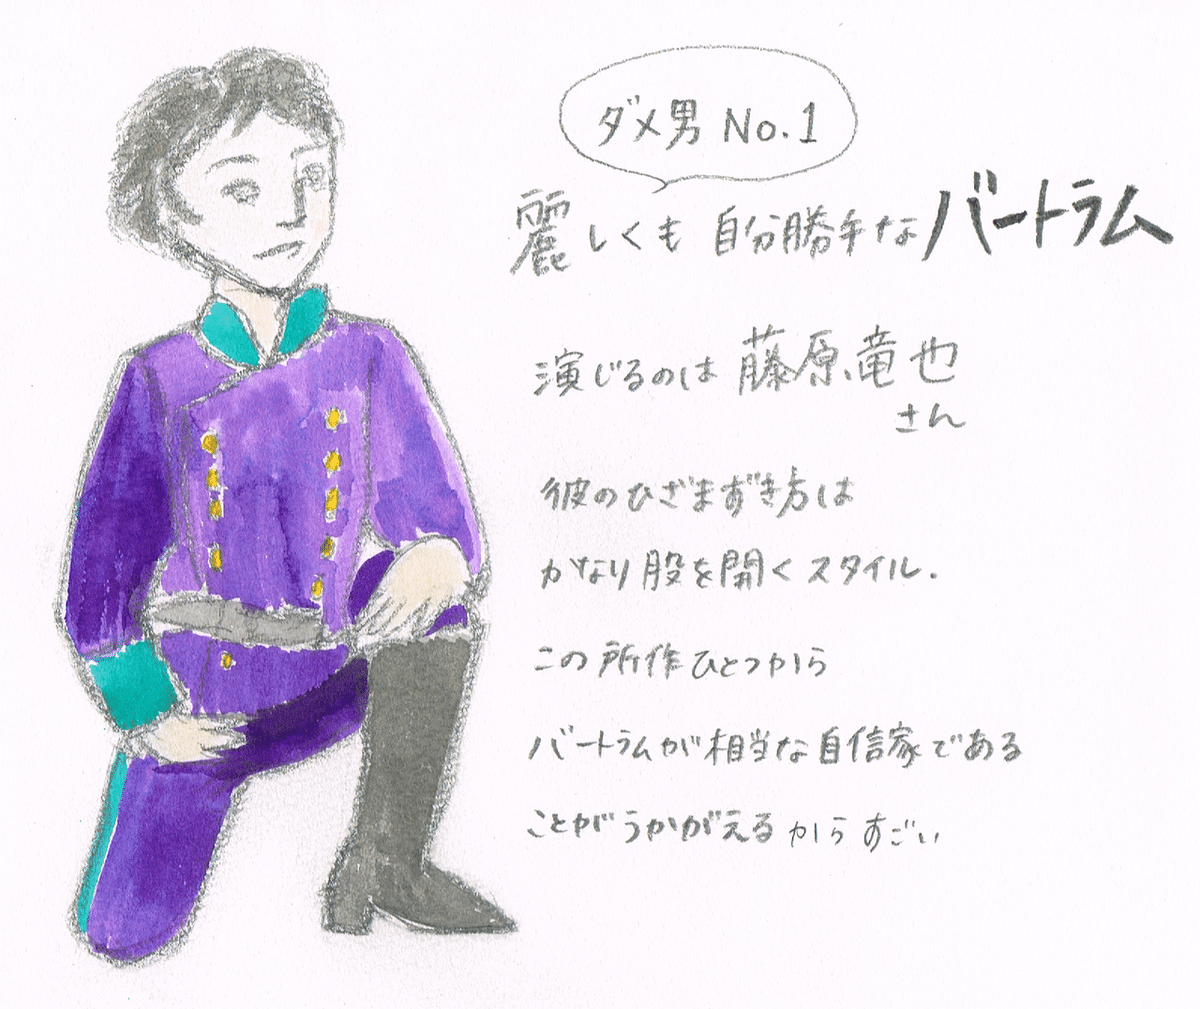 ダメ男 No.1
麗しくも 自分勝手な バートラム
演じるのは 藤原竜也
さん
彼のひざまずき方は
かなり股を開くスタイル.
この所作ひとつから
バートラムが相当な自信家である
ことがうかがえるからすごい